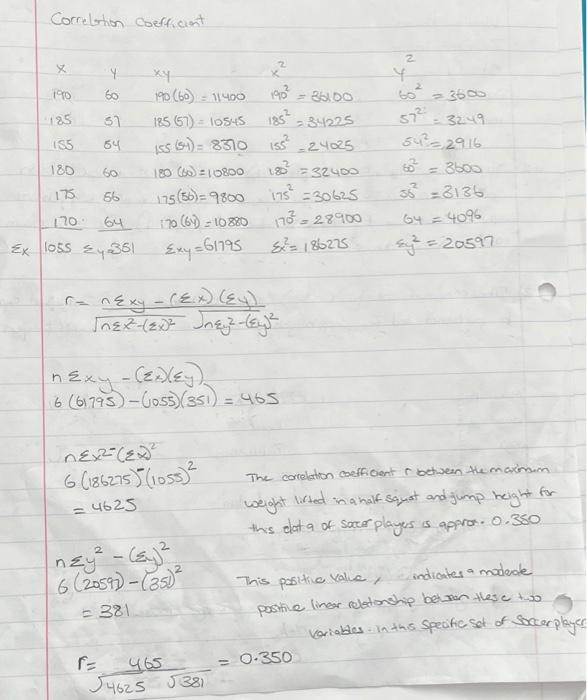 Correlation Coefficient
x y xy x² y²
190 60 190(60) = 11400 190² = 36100 60² = 3600
185 57 185(57) = 10545 185² = 34225 57² = 3249
155 54 155(54) = 8370 155² = 24025 54² = 2916
180 60 180(60) = 10800 180² = 32400 60² = 3600
175 56 175(56) = 9800 175² = 30625 56² = 3136
170 64 170(64) = 10880 170² = 28900 64 = 4096
Σx 1055 Σy=351 Σxy = 61795 Σx² = 186275 Σy² = 20597
r = nΣxy - (Σx)(Σy)
√nΣx²-(Σx)² √nΣy²-(Σy)²
nΣxy - (Σx)(Σy)
6(61795) - (1055)(351) = 465
nΣx² - (Σx)²
6(186275) - (1055)²
= 4625
The correlation coefficient r between the maximum
weight lifted in a half squat and jump height for
this data of soccer players is approx. 0.350
nΣy² - (Σy)²
6(20597) - (351)²
= 381
This positive value, indicates a moderate
positive linear relationship between these two
variables. in this specific set of soccer player
r = 465 = 0.350
√4625 √381